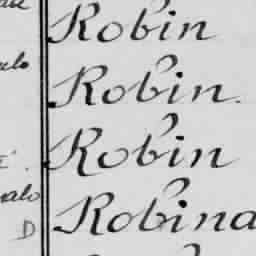 Robin
Robin.
Robin
Robina
D